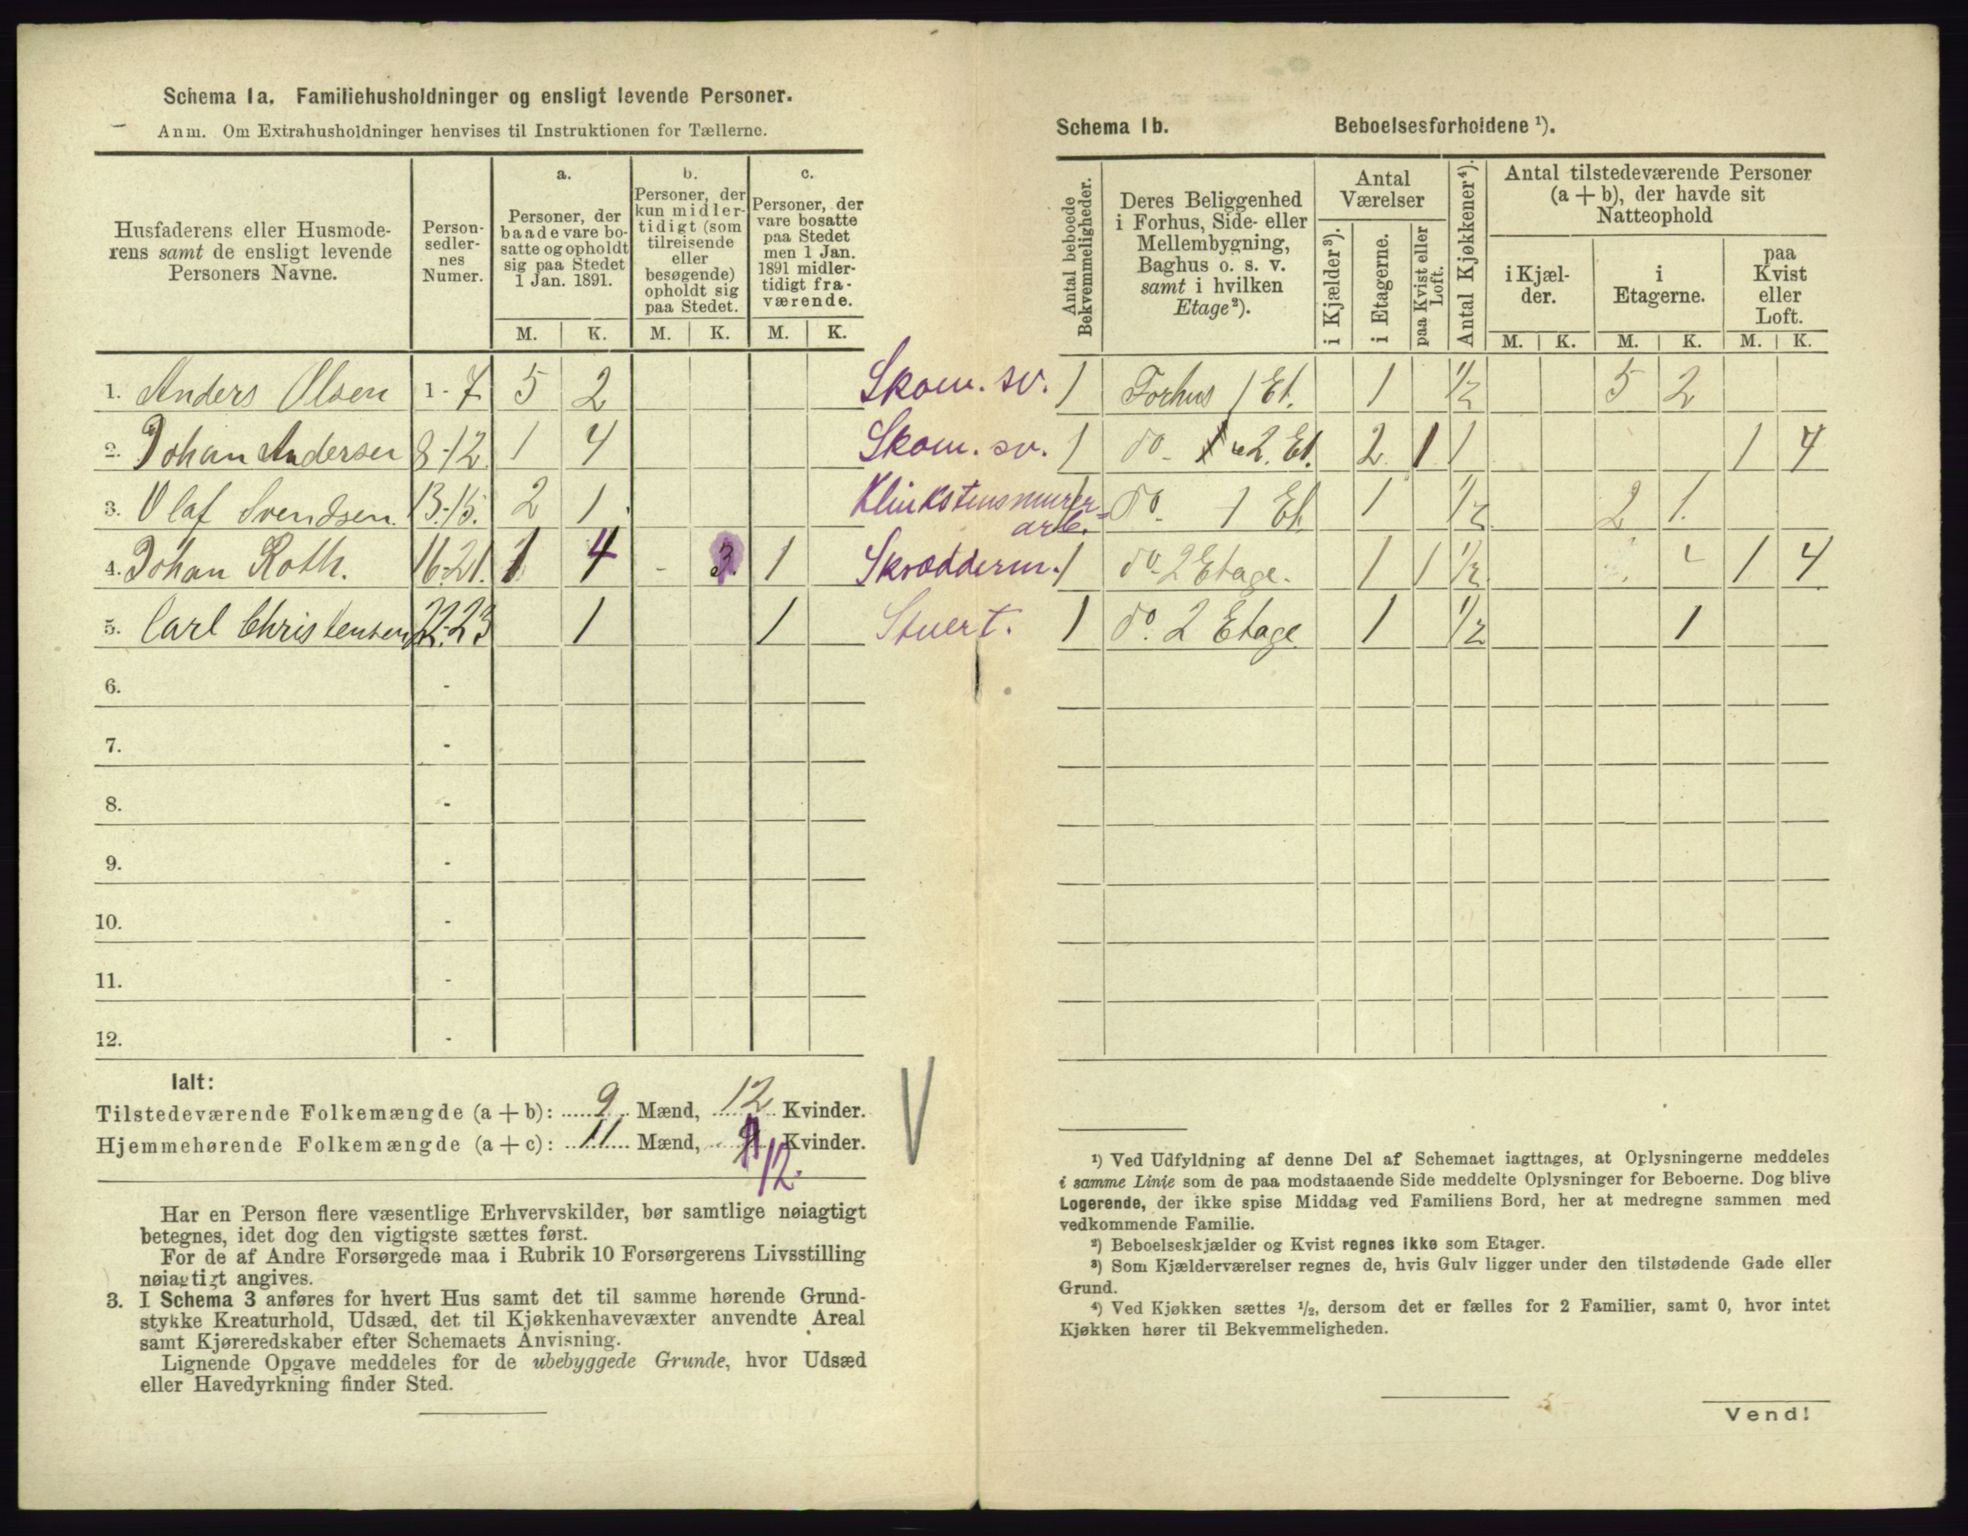 Schema 1a. Familiehusholdninger og ensligt levende Personer.
Anm. Om Extrahusholdninger henvises til Instruktionen for Tællerne.
Husfaderens eller Husmoderens samt de ensligt levende Personers Navne.
Person-sedler-nes Numer.
a. Personer, der baade vare bosatte og opholdt sig paa Stedet 1 Jan. 1891.
b. Personer, der kun midlertidigt (som tilreisende eller besøgende) opholdt sig paa Stedet.
c. Personer, der vare bosatte paa Stedet men 1 Jan. 1891 midlertidigt fraværende.
M. K. M. K. M. K.
1. Anders Olsen 1-7 5 2 Skom. sv.
2. Johan Andersen 8-12 1 4 Skom. sv.
3. Olaf Svendsen 13-15. 2 1. Klinkstensmurer=
arb.
4. Johan Roth. 16-21. 1 4 - 3. 1 Skrædderm.
5. Carl Christensen 22-23 1 1 Stuert.
6. -
7. -
8. -
9. -
10. -
11. -
12. -
Ialt:
Tilstedeværende Folkemængde (a + b): 9 Mænd, 12 Kvinder.
Hjemmehørende Folkemængde (a + c): 11 Mænd, Kvinder.
12.
Har en Person flere væsentlige Erhvervskilder, bør samtlige nøiagtigt
betegnes, idet dog den vigtigste sættes først.
For de af Andre Forsørgede maa i Rubrik 10 Forsørgerens Livsstilling
nøiagtigt angives.
3. I Schema 3 anføres for hvert Hus samt det til samme hørende Grund-
stykke Kreaturhold, Udsæd, det til Kjøkkenhavevæxter anvendte Areal
samt Kjøreredskaber efter Schemaets Anvisning.
Lignende Opgave meddeles for de ubebyggede Grunde, hvor Udsæd
eller Havedyrkning finder Sted.
Schema 1b. Beboelsesforholdene ¹).
Antal beboede Bekvemmeligheder.
Deres Beliggenhed i Forhus, Side- eller Mellembygning, Baghus o. s. v. samt i hvilken Etage²).
Antal Værelser
i Kjælder³).
i Etagerne.
paa Kvist eller Loft.
Antal Kjøkkener⁴).
Antal tilstedeværende Personer (a + b), der havde sit Natteophold
i Kjælder.
i Etagerne.
paa Kvist eller Loft.
M. K. M. K. M. K.
1 Forhus 1 Et. 1 1/2 5 2
1 do - 2. Et. 2 1 1 1 4
1 do. 1 Et 1 1/2 2 1.
1 do. 2 Etage. 1 1 1/2 1 4
1 do. 2 Etage 1 1/2 1
¹) Ved Udfyldning af denne Del af Schemaet iagttages, at Oplysningerne meddeles
i samme Linie som de paa modstaaende Side meddelte Oplysninger for Beboerne. Dog blive
Logerende, der ikke spise Middag ved Familiens Bord, her at medregne sammen med
vedkommende Familie.
²) Beboelseskjælder og Kvist regnes ikke som Etager.
³) Som Kjælderværelser regnes de, hvis Gulv ligger under den tilstødende Gade eller
Grund.
⁴) Ved Kjøkken sættes ¹/₂, dersom det er fælles for 2 Familier, samt 0, hvor intet
Kjøkken hører til Bekvemmeligheden.
Vend!